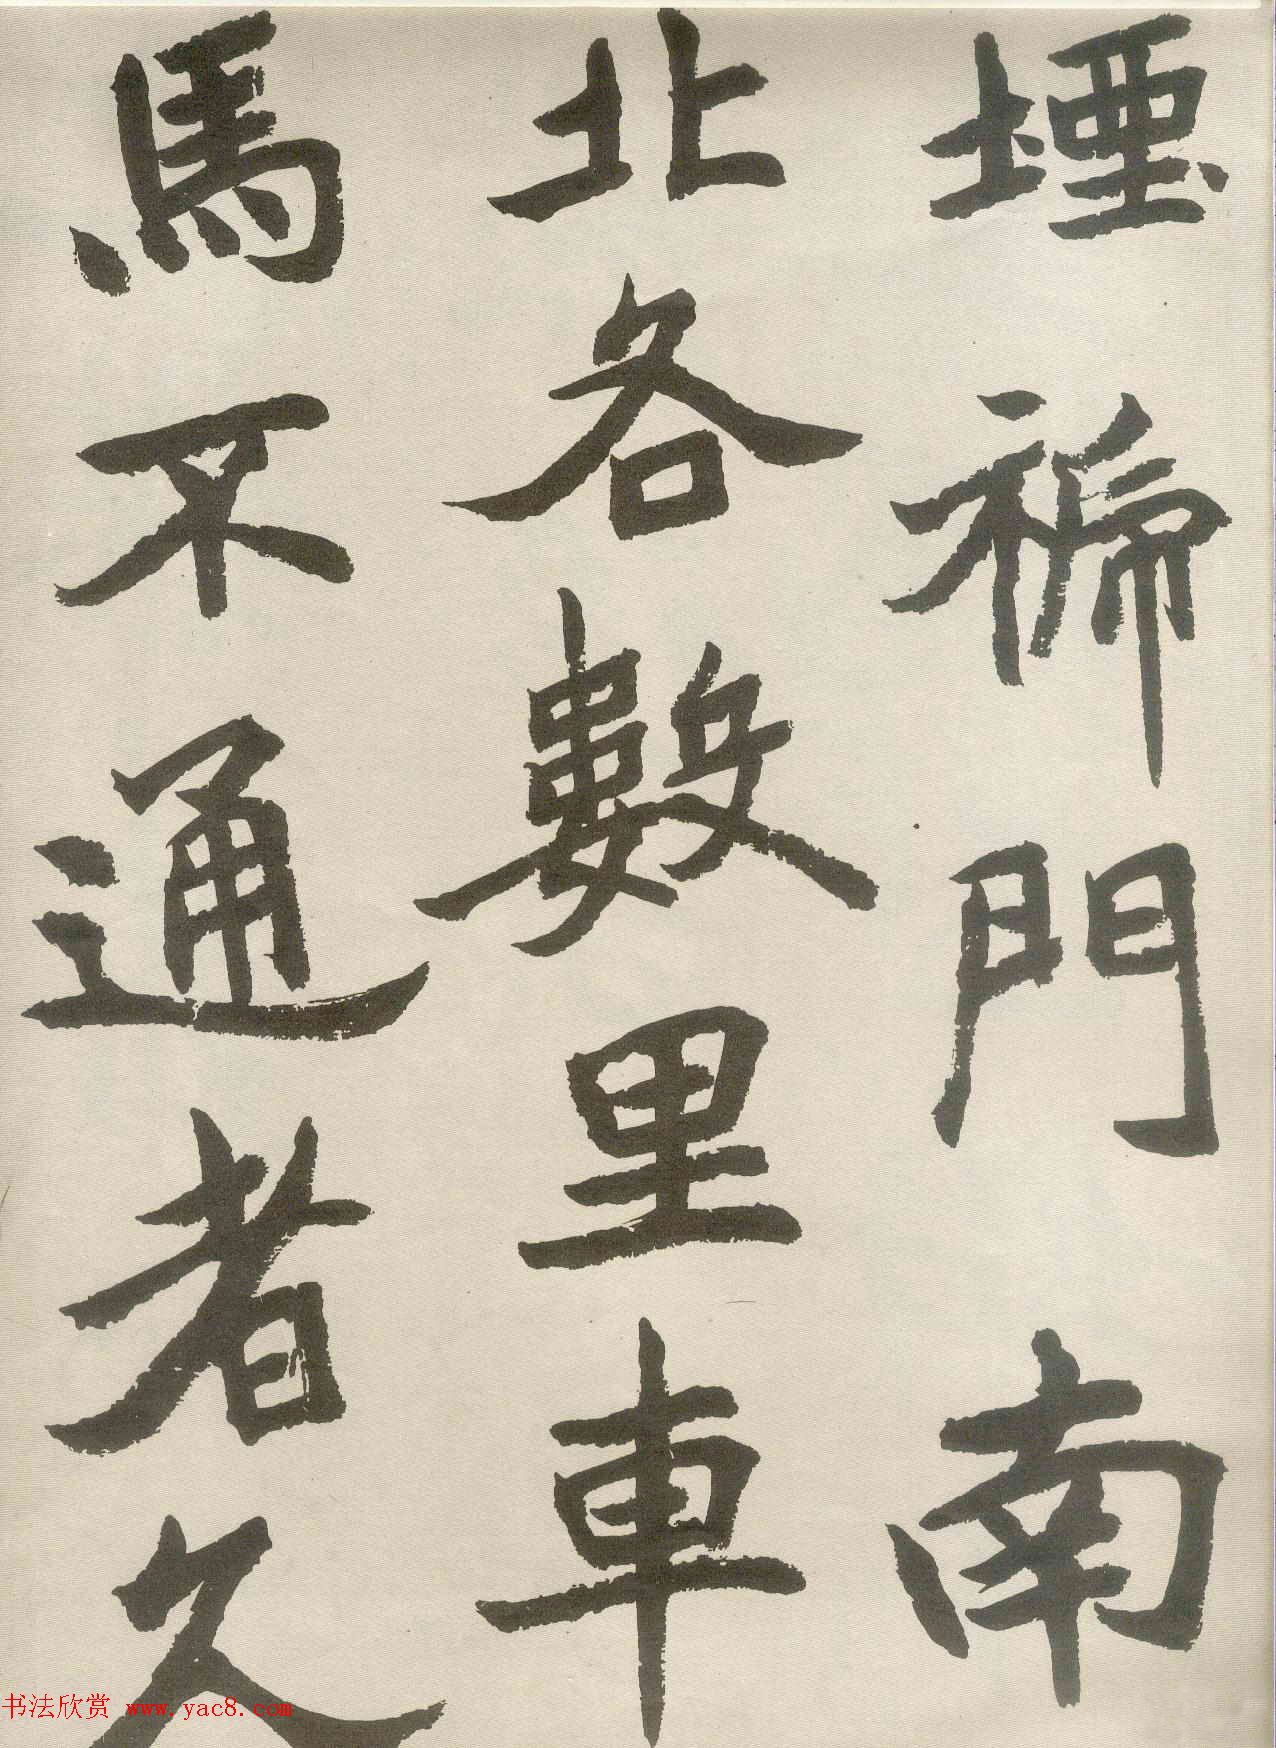 堙門南
北各數里車
馬不通者久
书法欣赏 www.yac8.com